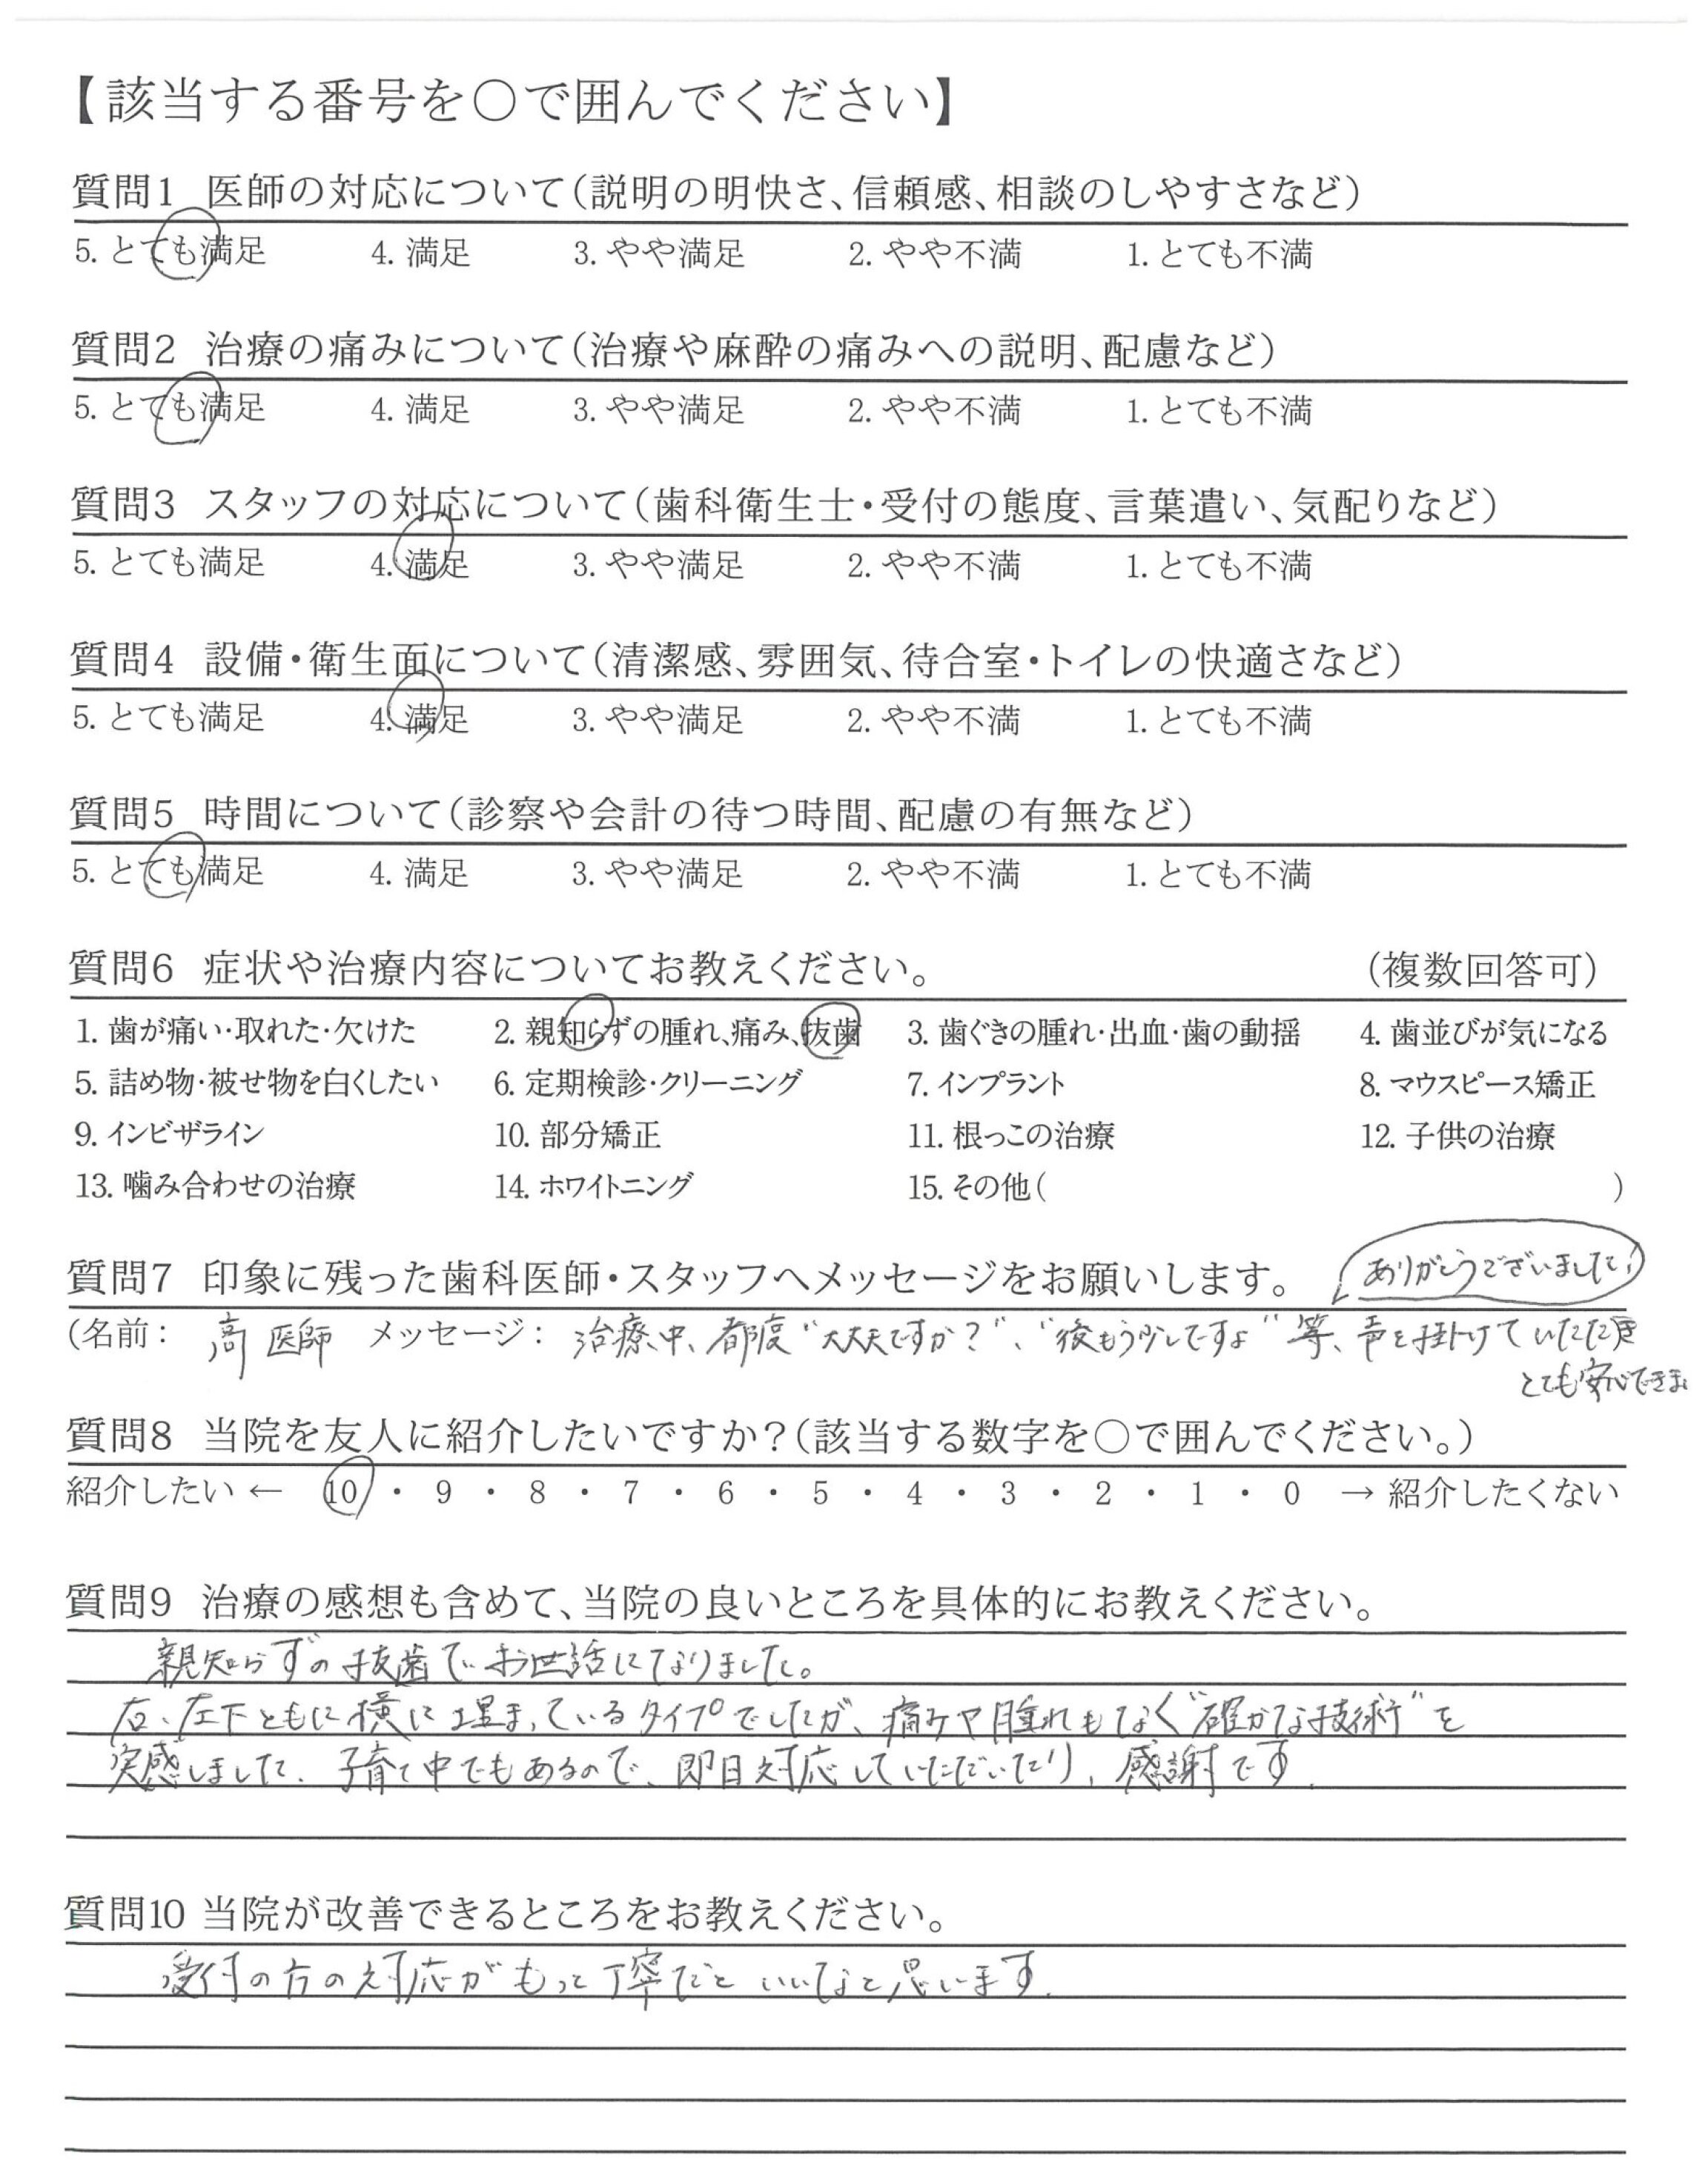 【該当する番号を〇で囲んでください】
質問1 医師の対応について(説明の明快さ、信頼感、相談のしやすさなど)
5. とても満足 4. 満足 3. やや満足 2. やや不満 1. とても不満
質問2 治療の痛みについて(治療や麻酔の痛みへの説明、配慮など)
5. とても満足 4. 満足 3. やや満足 2. やや不満 1. とても不満
質問3 スタッフの対応について(歯科衛生士・受付の態度、言葉遣い、気配りなど)
5. とても満足 4. 満足 3. やや満足 2. やや不満 1. とても不満
質問4 設備・衛生面について(清潔感、雰囲気、待合室・トイレの快適さなど)
5. とても満足 4. 満足 3. やや満足 2. やや不満 1. とても不満
質問5 時間について(診察や会計の待つ時間、配慮の有無など)
5. とても満足 4. 満足 3. やや満足 2. やや不満 1. とても不満
質問6 症状や治療内容についてお教えください。 (複数回答可)
1. 歯が痛い・取れた・欠けた 2. 親知らずの腫れ、痛み、抜歯 3. 歯ぐきの腫れ・出血・歯の動揺 4. 歯並びが気になる
5. 詰め物・被せ物を白くしたい 6. 定期検診・クリーニング 7. インプラント 8. マウスピース矯正
9. インビザライン 10. 部分矯正 11. 根っこの治療 12. 子供の治療
13. 噛み合わせの治療 14. ホワイトニング 15. その他( )
質問7 印象に残った歯科医師・スタッフへメッセージをお願いします。 ありがとうございました!
(名前: 高 医師 メッセージ: 治療中、都度“大丈夫ですか?”、“後もう少しですよ”等、声を掛けていただき
とても安心できま
質問8 当院を友人に紹介したいですか?(該当する数字を〇で囲んでください。)
紹介したい ← 10 ・ 9 ・ 8 ・ 7 ・ 6 ・ 5 ・ 4 ・ 3 ・ 2 ・ 1 ・ 0 → 紹介したくない
質問9 治療の感想も含めて、当院の良いところを具体的にお教えください。
親知らずの抜歯でお世話になりました。
右、左下ともに横に埋まっているタイプでしたが、痛みや腫れもなく“確かな技術”を
実感しました。子育て中でもあるので、即日対応していただいたり、感謝です.
質問10 当院が改善できるところをお教えください。
受付の方の対応がもっと丁寧だといいなと思います.